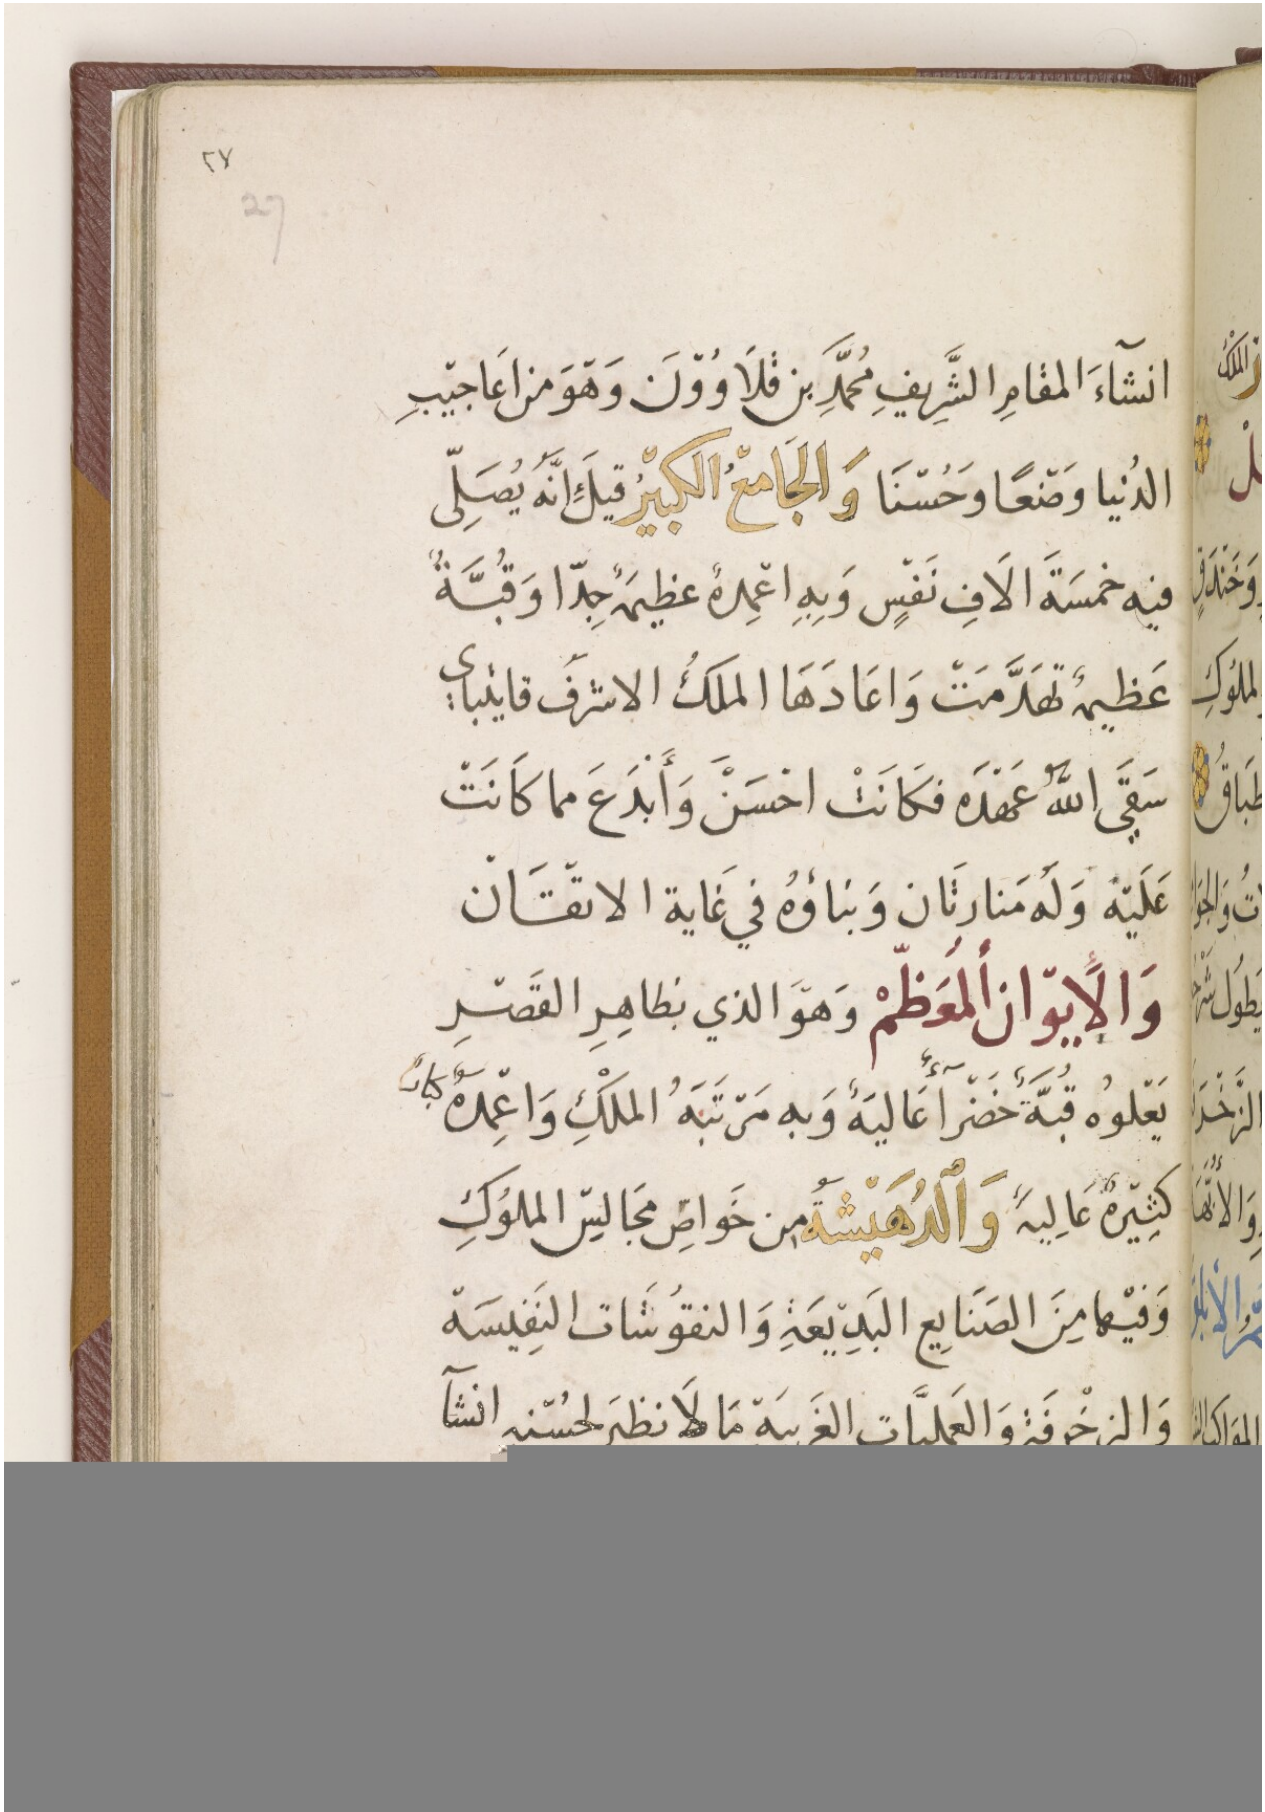 ٢٧
27
انشآءَ المقامِ الشَّرِيفِ مُحمَّدِ بن قلَاوُوْنَ وَهْوَ من اعَاجيْبِ
الدُنيا وَصْنعًا وحُسْنَا وَالجَامعُ الكبيْرُ قيلَ اِنَّه يُصَلِّى
فيه خمسَةَ الَافِ نَفسٍ وَبِهِ اعْمِدةٌ عظيمَةٌ جِدّا وَقُبَّةٌ
عَظيمةٌ تَهَدَّمَتْ وَاعَادَهَا الملكُ الاشرفُ قايتباي
سَقَى اللهُ عَهْدَه فكَانَتْ احْسَنَ وَأَبْدَعَ مما كَانَتْ
عَلَيْه وَلَه مَنارتَان وَبناؤهُ في غَاية الاتقَان
وَالْإيوْان المُعَظَّمْ وَهوَ الذي بظاهِرِ القَصْرِ
يَعْلوُه قُبَّةٌ خَضْرآءُ عَاليةٌ وَبه مَرْتَبَةُ الملْكِ وَاعْمِدةٌ
كثِيْرةٌ عَاليةٌ وَالدُهَيْشةُ من خَواصِّ مَجَالسِ الملوُكِ
وَفيْهَا مِنَ الصَنَايِع البَدِيْعَةِ وَالنقوُشَات النَفِيسَة
وَالزخْرفَة وَالعَمليَّات الغَريبَة مَا لَا نظيرَ لحسْنه انشآ